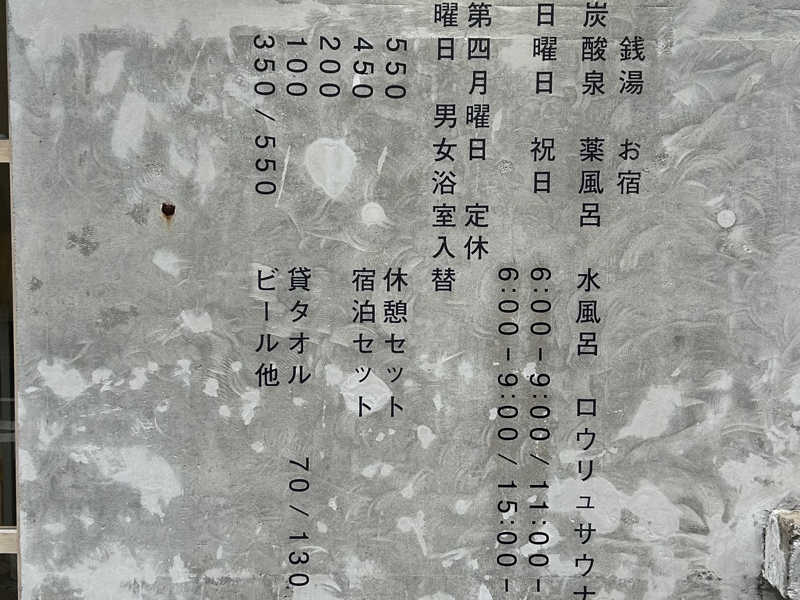 銭湯 お宿
炭酸泉 薬風呂 水風呂 ロウリュサウナ
日曜日 祝日 6:00-9:00/11:00-
6:00-9:00/15:00-
第四月曜日 定休
曜日 男女浴室入替
550 休憩セット
450 宿泊セット
200
100 貸タオル 70/130
350/550 ビール他